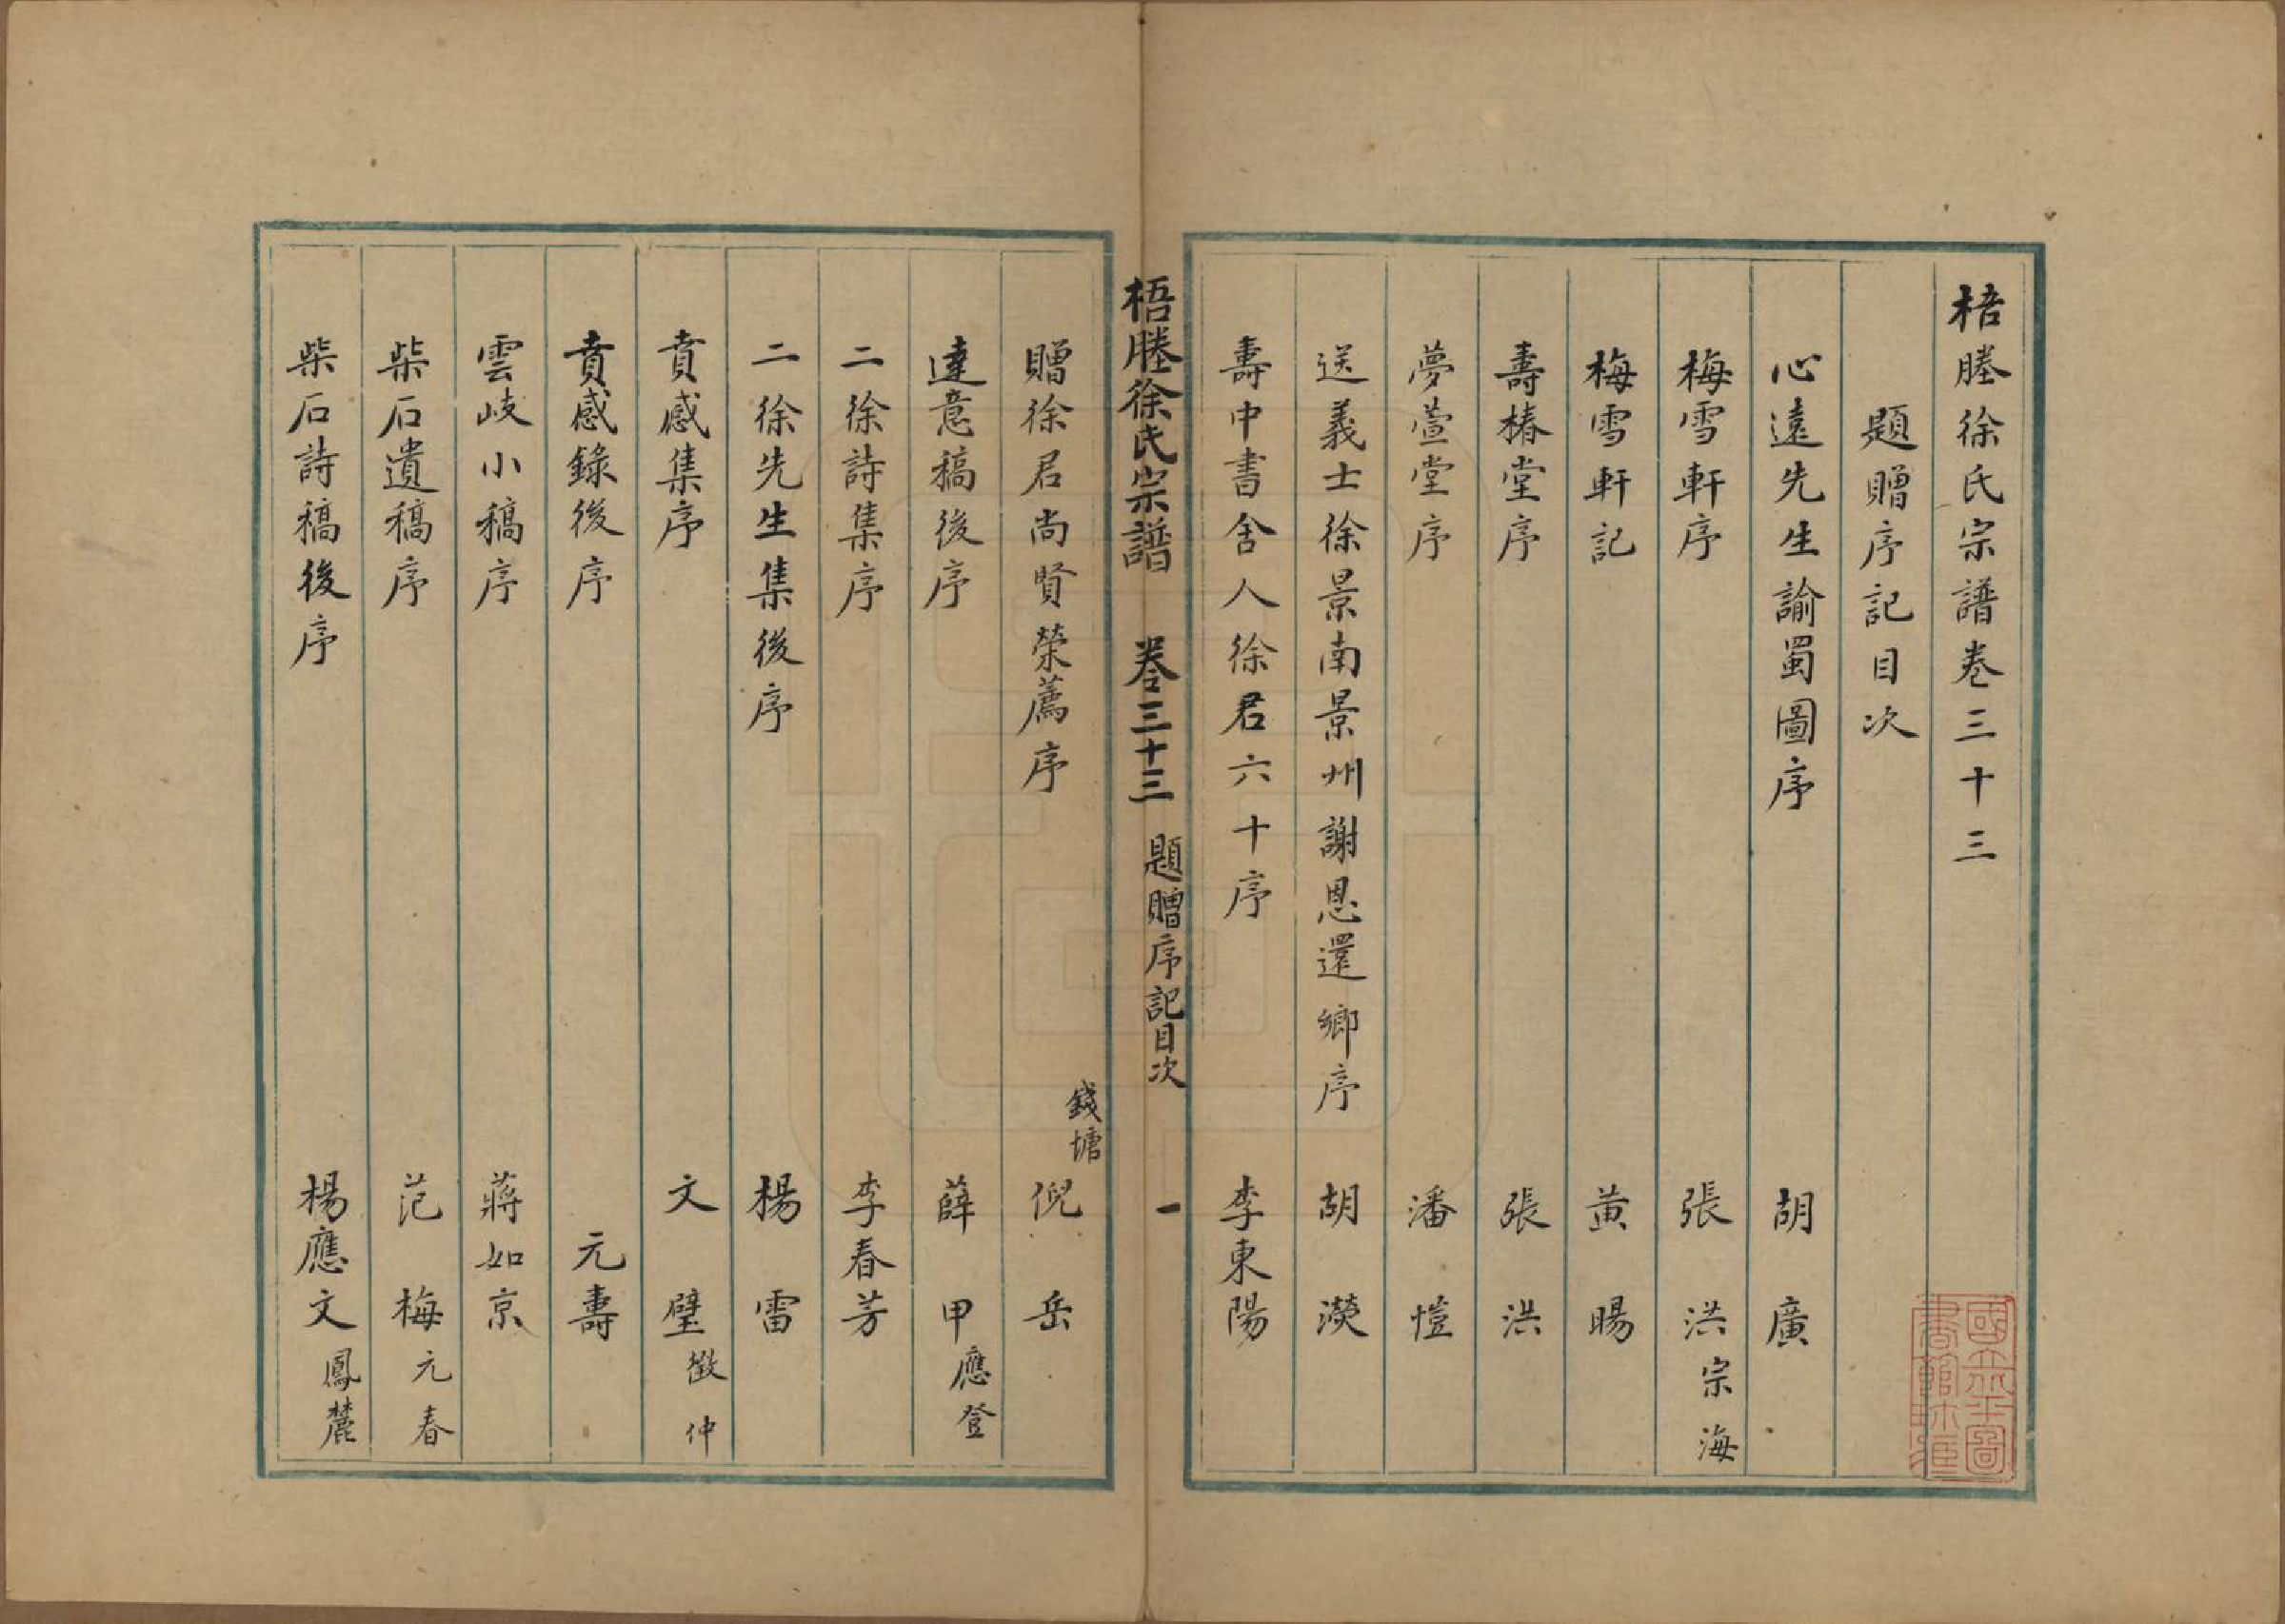 梧塍徐氏宗譜卷三十三
題贈序記目次
心遠先生諭蜀圖序 胡廣
梅雪軒序 張洪宗海
梅雪軒記 黃暘
壽椿堂序 張洪
夢萱堂序 潘愷
送義士徐景南景州謝恩還鄉序 胡濙
壽中書舍人徐君六十序 李東陽
梧塍徐氏宗譜 卷三十三 題贈序記目次 一
贈徐君尚賢榮薦序 錢塘倪岳
達意稿後序 薛甲應登
二徐詩集序 李春芳
二徐先生集後序 楊雷
賁感集序 文璧徵仲
賁感錄後序 元壽
雲岐小稿序 蔣如京
柴石遺稿序 范梅元春
柴石詩稿後序 楊應文鳳麓
國立北平圖書館珍藏